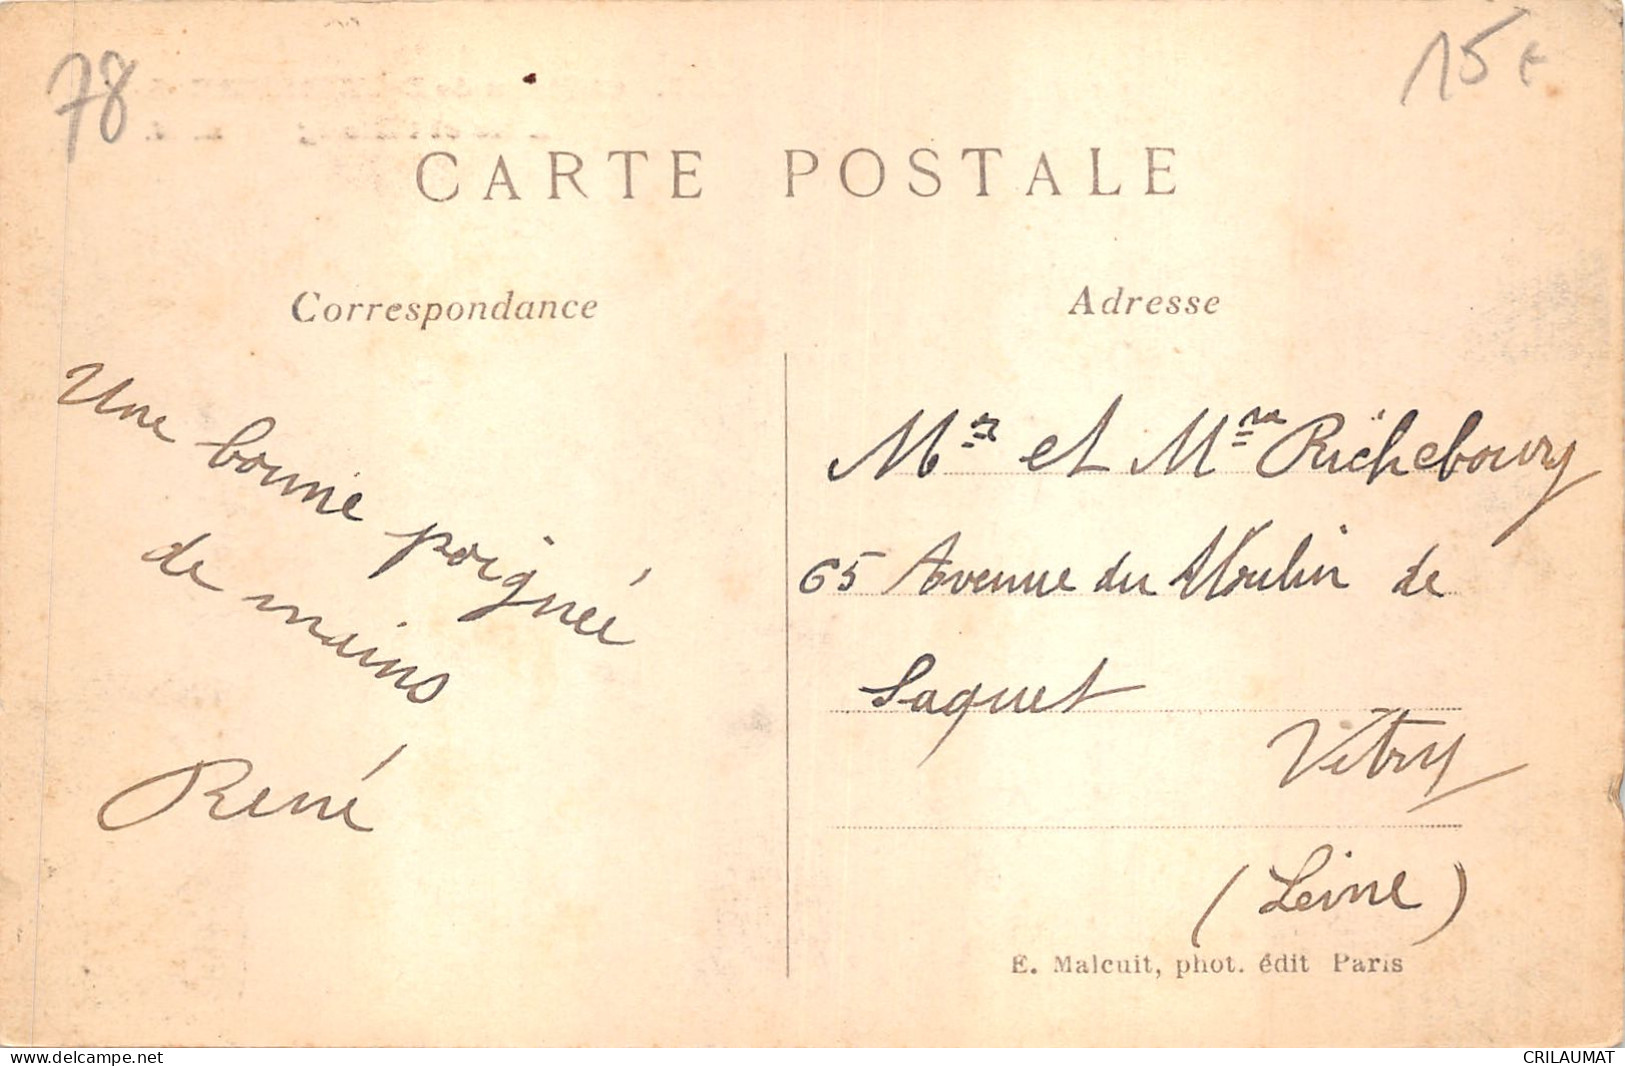 78
15€
CARTE POSTALE
Correspondance
Adresse
Une bonne poignée
de mains
René
Mr et Mme Richebourg
65 Avenue du Moulin de
Saquet
Vitry
(Seine)
E. Malcuit, phot. édit Paris
www.delcampe.net
CRILAUMAT